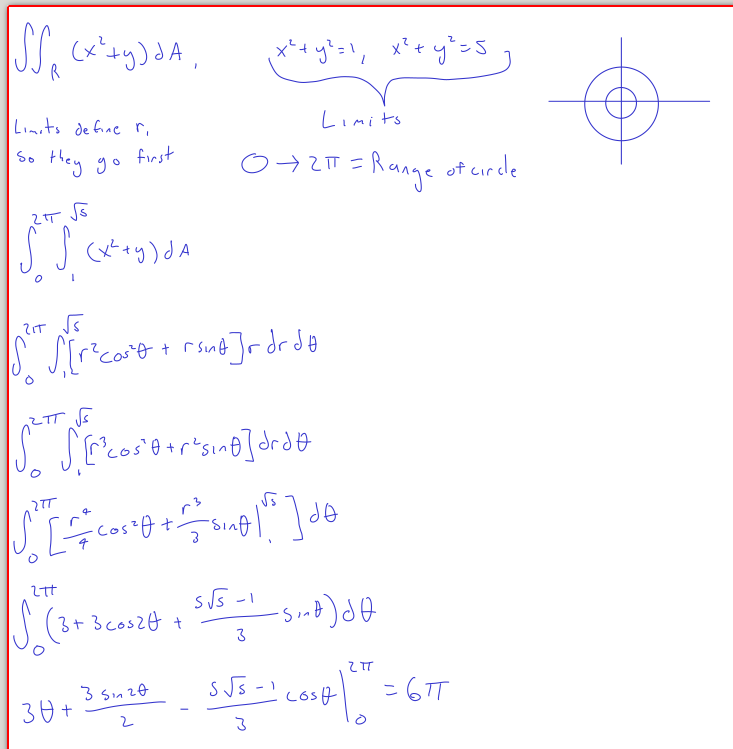 ∬_R (x²+y) dA, x²+y²=1, x²+y²=5
Limits
Limits define r,
so they go first
0 → 2π = Range of circle
∫₀^{2π} ∫₁^{√5} (x²+y) dA
∫₀^{2π} ∫₁^{√5} [r²cos²θ + r sinθ] r dr dθ
∫₀^{2π} ∫₁^{√5} [r³cos²θ + r² sinθ] dr dθ
∫₀^{2π} [r⁴/4 cos²θ + r³/3 sinθ |₁^{√5}] dθ
∫₀^{2π} (3 + 3cos2θ + (5√5 - 1)/3 sinθ) dθ
3θ + (3 sin2θ)/2 - (5√5 - 1)/3 cosθ |₀^{2π} = 6π